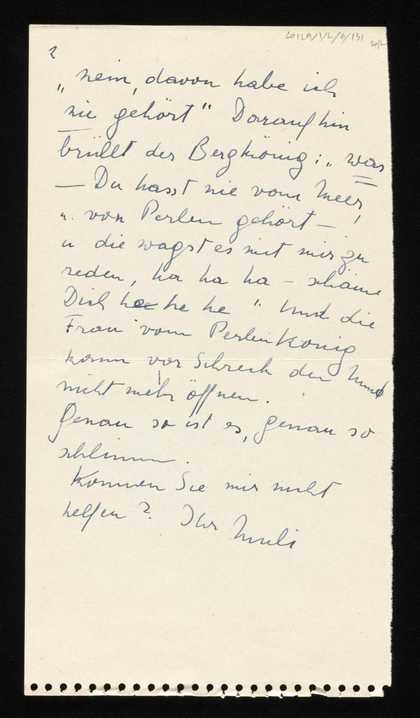 2
„nein, davon habe ich
nie gehört" Daraufhin
brüllt der Bergkönig: „was
— Du hasst nie vom Meer,
u. von Perlen gehört —
u die wagst es mit mir zu
reden, ha ha ha — schäme
Dich he he he" Und die
Frau vom Perlenkönig
kann vor Schreck den Mund
nicht mehr öffnen.
Genau so ist es, genau so
schlimm.
Können Sie mir nicht
helfen? Ihr